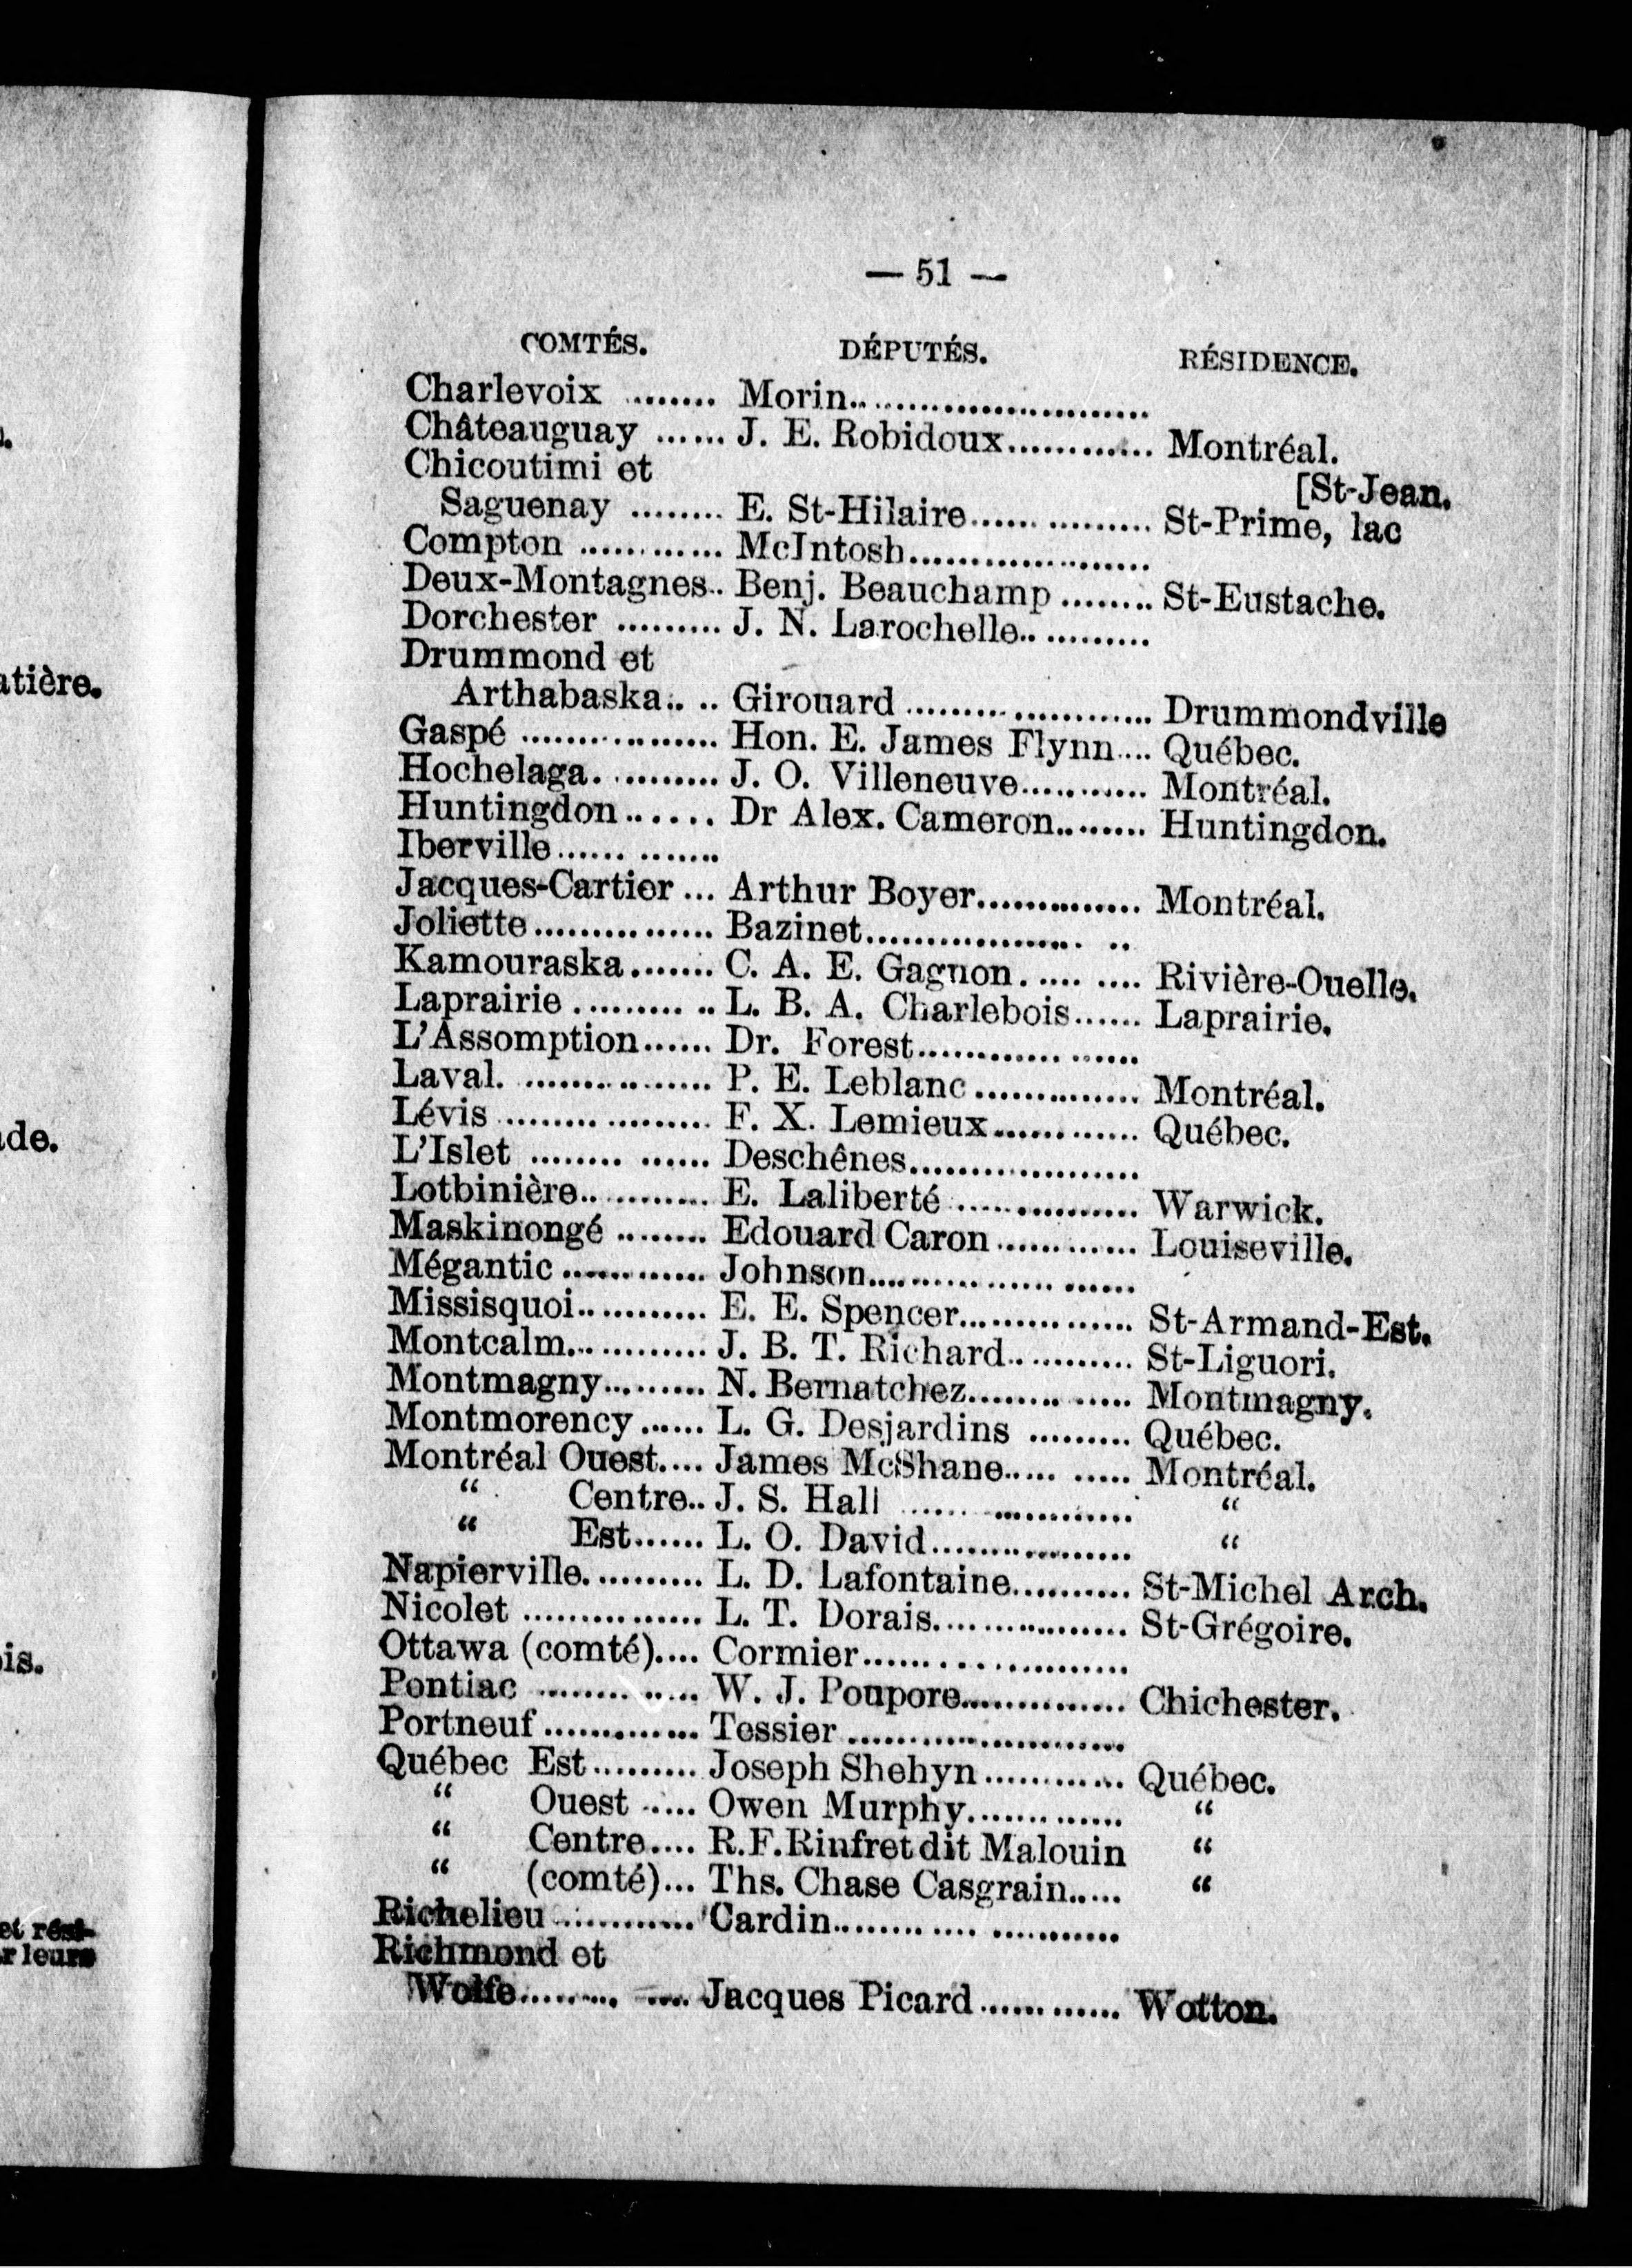 — 51 —
COMTÉS. DÉPUTÉS. RÉSIDENCE.
Charlevoix ........ Morin..........................
Châteauguay ...... J. E. Robidoux............. Montréal.
Chicoutimi et [St-Jean.
Saguenay ........ E. St-Hilaire................ St-Prime, lac
Compton ............ McIntosh.....................
Deux-Montagnes.. Benj. Beauchamp ........ St-Eustache.
Dorchester ......... J. N. Larochelle...........
Drummond et
Arthabaska.. .. Girouard ....................... Drummondville
Gaspé ................. Hon. E. James Flynn.... Québec.
Hochelaga........... J. O. Villeneuve........... Montréal.
Huntingdon...... Dr Alex. Cameron........ Huntingdon.
Iberville.............
Jacques-Cartier ... Arthur Boyer.............. Montréal.
Joliette............... Bazinet.................. ..
Kamouraska....... C. A. E. Gagnon......... Rivière-Ouelle.
Laprairie ........... L. B. A. Charlebois...... Laprairie.
L'Assomption...... Dr. Forest...................
Laval. ................ P. E. Leblanc .............. Montréal.
Lévis .................. F. X. Lemieux............ Québec.
L'Islet .............. Deschênes....................
Lotbinière........... E. Laliberté ................ Warwick.
Maskinongé ........ Edouard Caron ............ Louiseville.
Mégantic ............ Johnson.......................
Missisquoi........... E. E. Spencer............... St-Armand-Est.
Montcalm............ J. B. T. Richard........... St-Liguori.
Montmagny......... N. Bernatchez............. Montmagny.
Montmorency ...... L. G. Desjardins ......... Québec.
Montréal Ouest.... James McShane.......... Montréal.
“ Centre.. J. S. Hall .................. “
“ Est...... L. O. David................. “
Napierville.......... L. D. Lafontaine.......... St-Michel Arch.
Nicolet ............... L. T. Dorais................ St-Grégoire.
Ottawa (comté).... Cormier......................
Pontiac ............. W. J. Poupore.............. Chichester.
Portneuf ............. Tessier .......................
Québec Est......... Joseph Shehyn ............ Québec.
“ Ouest ..... Owen Murphy............. “
“ Centre.... R.F.Rinfret dit Malouin “
“ (comté)... Ths. Chase Casgrain..... “
Richelieu ............ Cardin.......................
Richmond et
Wolfe............. Jacques Picard ............ Wotton.
.
atière.
ade.
is.
et rési-
r leurs